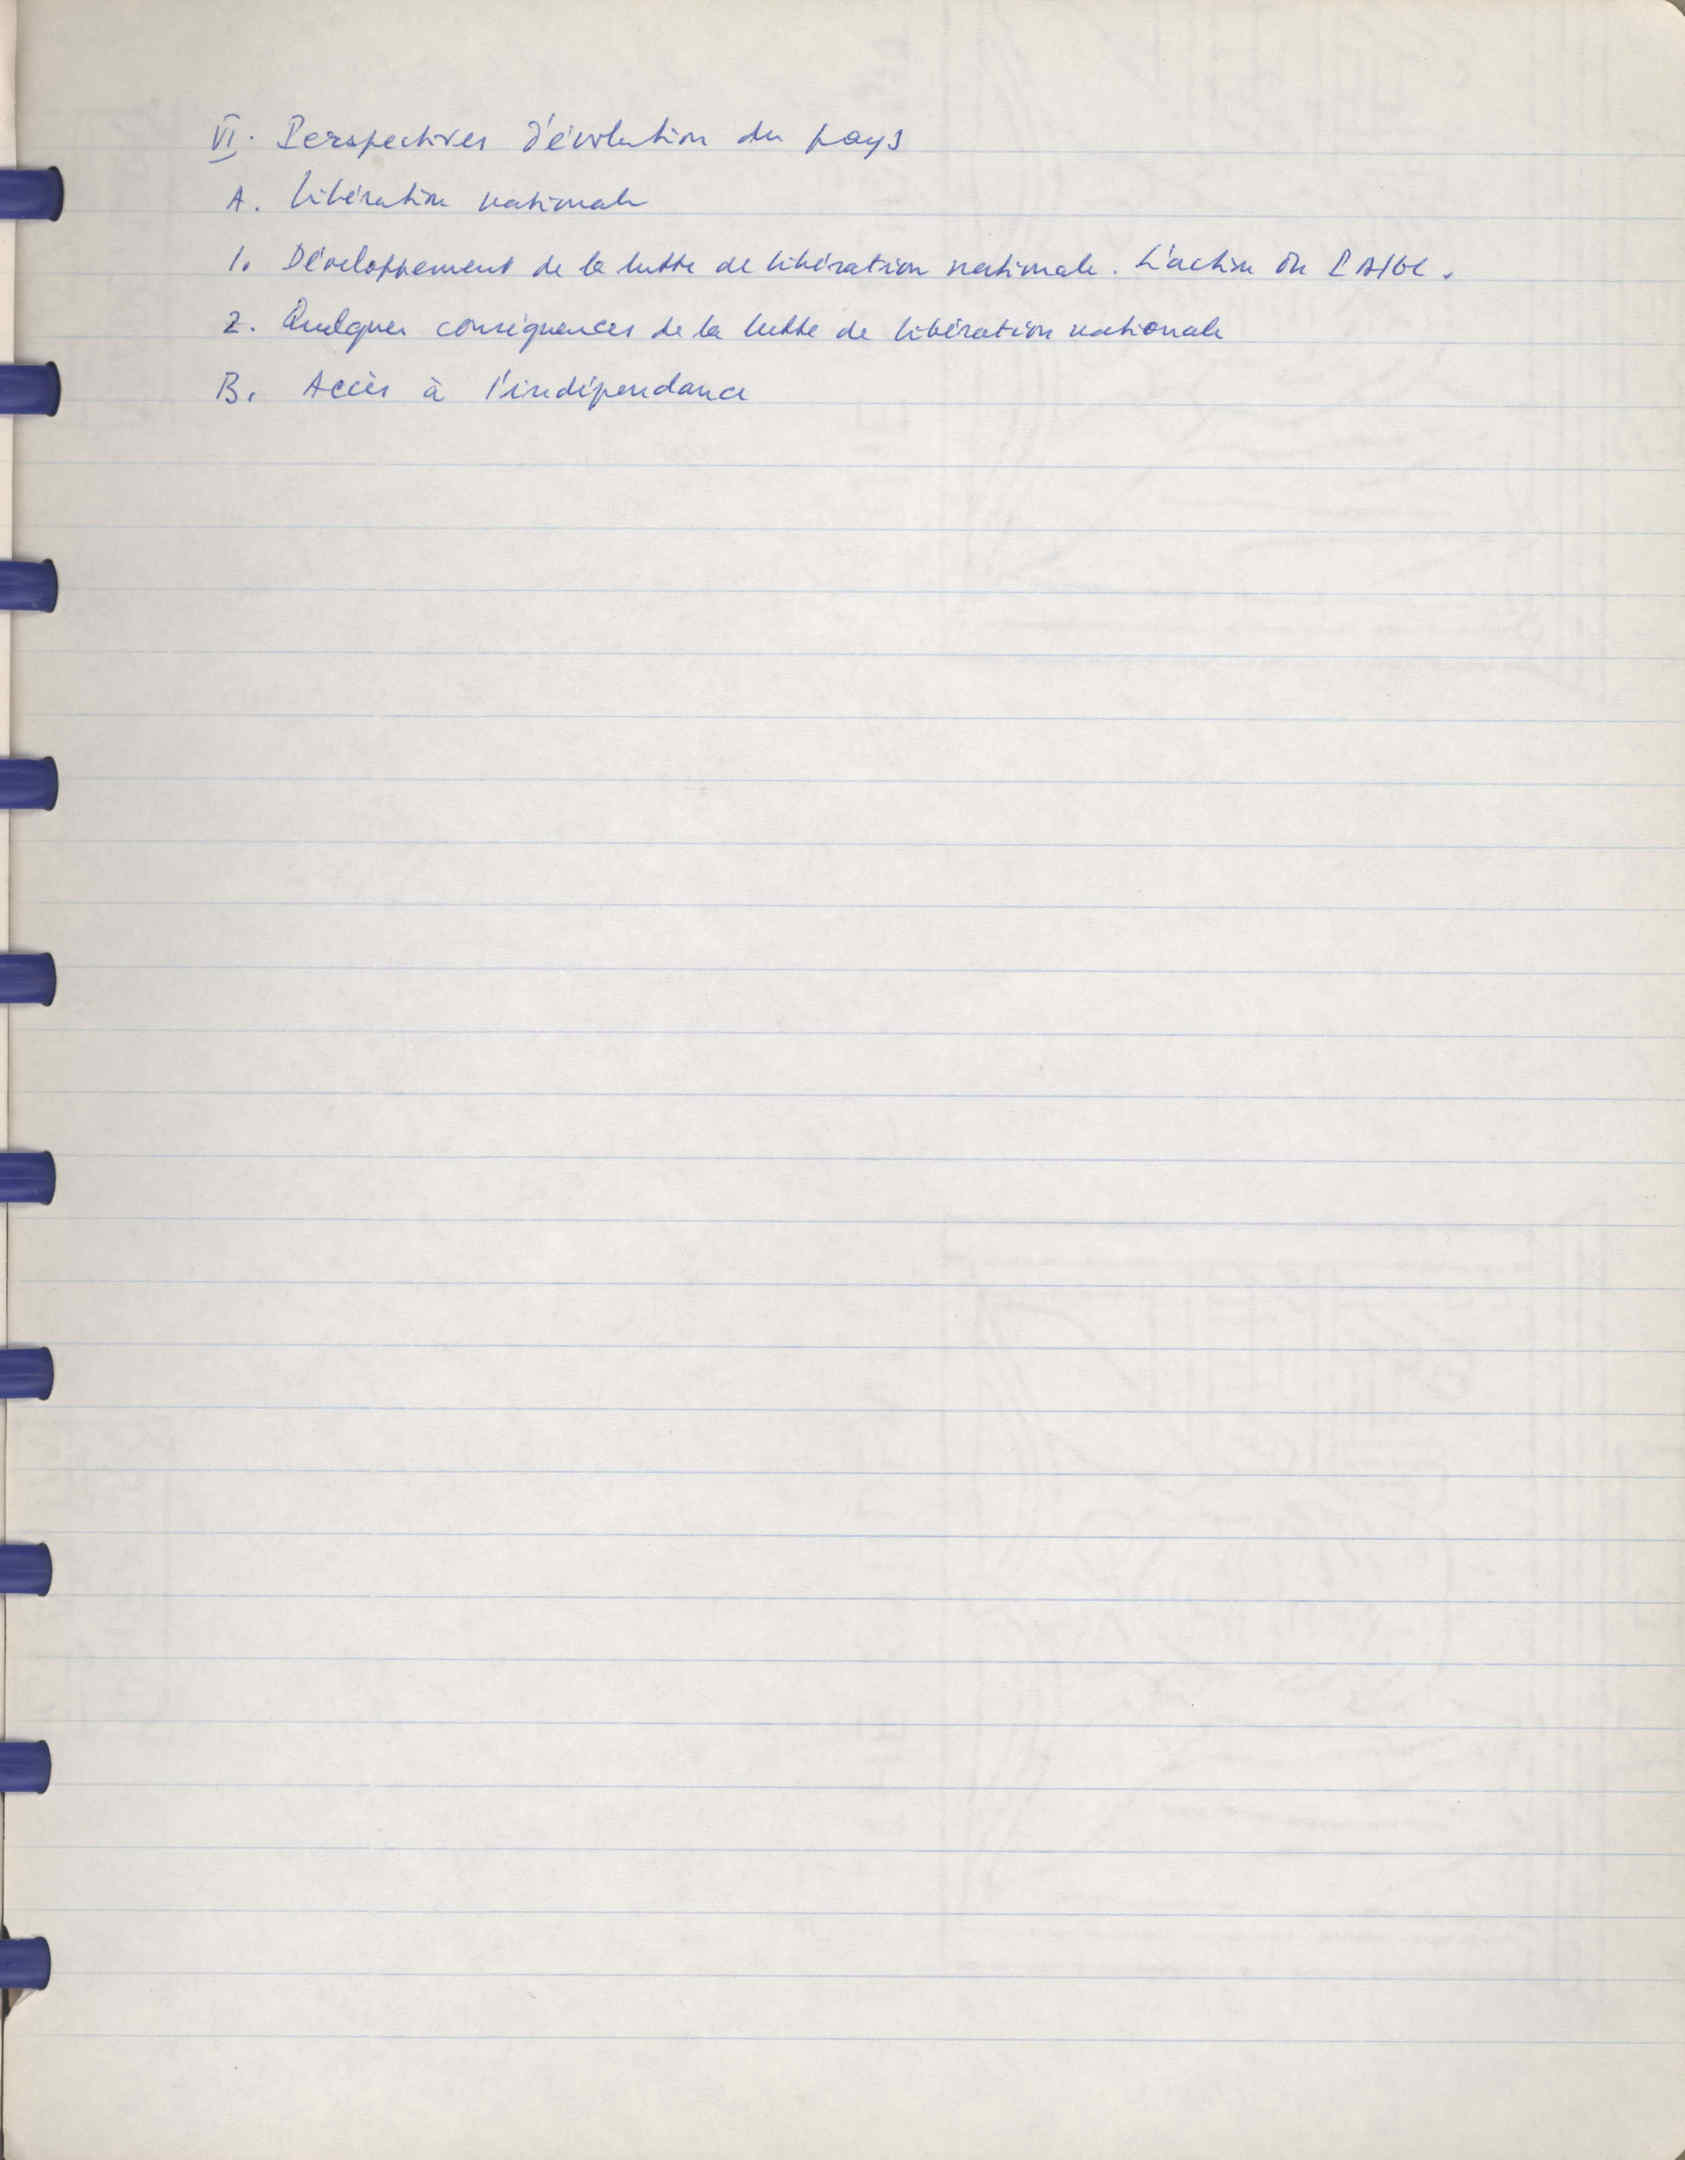 VI. Perspectives d'évolution du pays
A. Libération nationale
1. Développement de la lutte de libération nationale. L'action du PAIGC.
2. Quelques conséquences de la lutte de libération nationale
B. Accès à l'indépendance